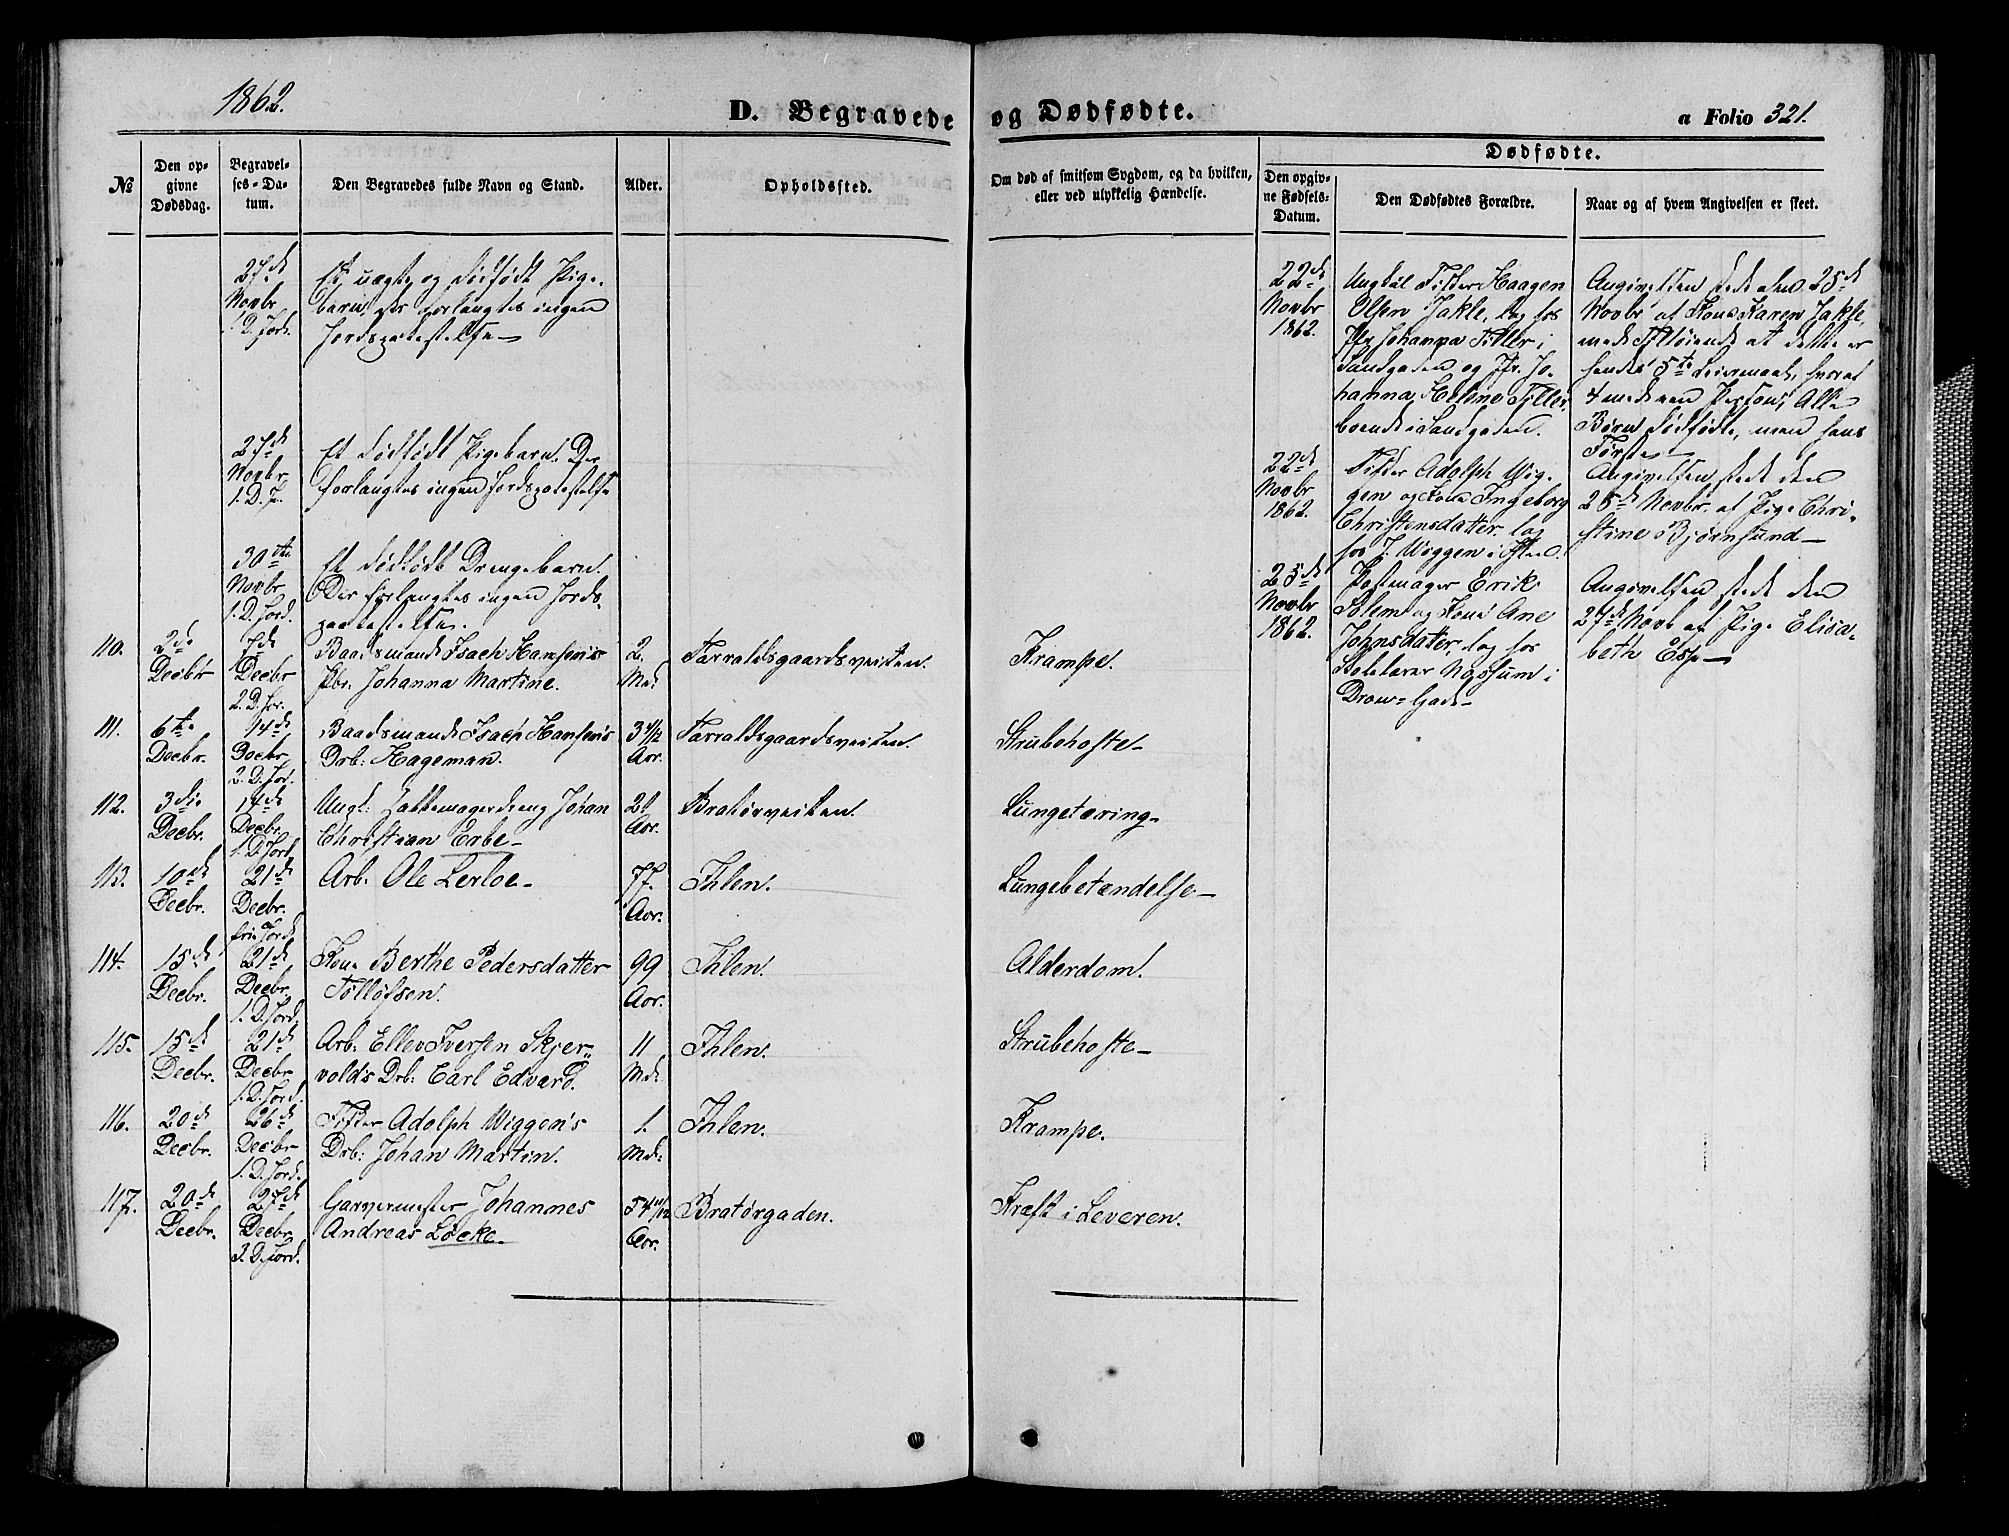 1862.
D. Begravede
og Dødfødte.
a Folio 321.
No
Den op-
givne
Dødsdag.
Begravel-
ses-Da-
tum.
Den Begravedes fulde Navn og Stand.
Alder.
Opholdssted.
Om død af smitsom Sygdom, og da hvilken,
eller ved ulykkelig Hændelse.
Dødfødte.
Den opgiv-
ne Fødsels-
Datum.
Den Dødfødtes Forældre.
Naar og af hvem Angivelsen er skeet.
27de
Novbr
1. D. Jord.
Et uægte og dødfødt Pige-
barn. Der forlangtes ingen
Jordspaakastelse
22de
Novbr
1862.
Ungkal Fisker Haagen
Olsen Jakle, log hos
Johanna Tiller i
Sandgaden og Jfr. Jo-
hanna Heline Tiller,
boende i Sandgaden.
Angivelsen skede den 25de
Novbr af Kone Karen Jakle,
med Tilføiende at dette er
hendes 5te Leiermaal, hvoraf
4 med een Person, Alle
Børn dødfødte, men hans
Første
27de
Novbr
1. D. J.
Et dødfødt Pigebarn. Der
forlangtes ingen Jordspaakastelse
22de
Novbr
1862.
Fisker Adolph Wig-
gen og Kone Ingeborg
Christensdatter log
hos J. Wiggen i Ihlen.
Angivelsen skede den
25de Novbr. af Pige Chri-
stine Bjørnsund
30te
Novbr
1. D. Jord.
Et dødfødt Drengebarn.
Der forlangtes ingen Jords-
paakastelse.
25de
Novbr
1862.
Erik
Solem og Kone Ane
Johnsdatter, log hos
Skolelærer Mossum i
Angivelsen skede den
27de Novbr af Pige Elisa-
beth Esp
110.
2de
Decbr
7de
Decbr
2. D. Jor.
Baadsmand Isach Hansens
Pbr. Johanna Martine.
2.
Md.
Tarraldsgaardsveiten.
Krampe.
111.
6te
Decbr.
14de
Decbr
2. D. Jor.
Baadsmand Isach Hansens
Drb: Hageman.
3 4/12
Aar.
Tarraldsgaardsveiten.
Strubehoste
112.
3die
Decbr.
14de
Decbr.
1. D. Jord
Ungk: Hattemagerdreng Johan
Christian Erbe
21
Aar.
Bratørveiten.
Lungetæring
113.
10de
Decbr.
21de
Decbr.
fri Jord
Arb: Ole Lerloe
77.
Aar.
Ihlen.
Lungebetændelse
114.
15de
Decbr.
21de
Decbr.
1. D. Jord.
Kone Berthe Pedersdatter
Tollofsen.
99
Aar.
Ihlen.
Alderdom.
115.
15de
Decbr.
21de
Decbr
1. D. Jord.
Arb: Ellev Iversen Skjer-
volds Drb: Carl Edvard.
11
Md.
Ihlen.
Strubehoste
116.
20de
Decbr.
26de
Decbr
1. D. Jord.
Fisker Adolph Wiggen's
Drb: Johan Martin.
1.
Md.
Ihlen.
Krampe.
117.
20de
Decbr.
27de
Decbr
3. D. Jord.
Garvermester Johannes
Andreas Löcke
54 11/12
Aar.
Bratørgaden.
Kræft i Leveren.